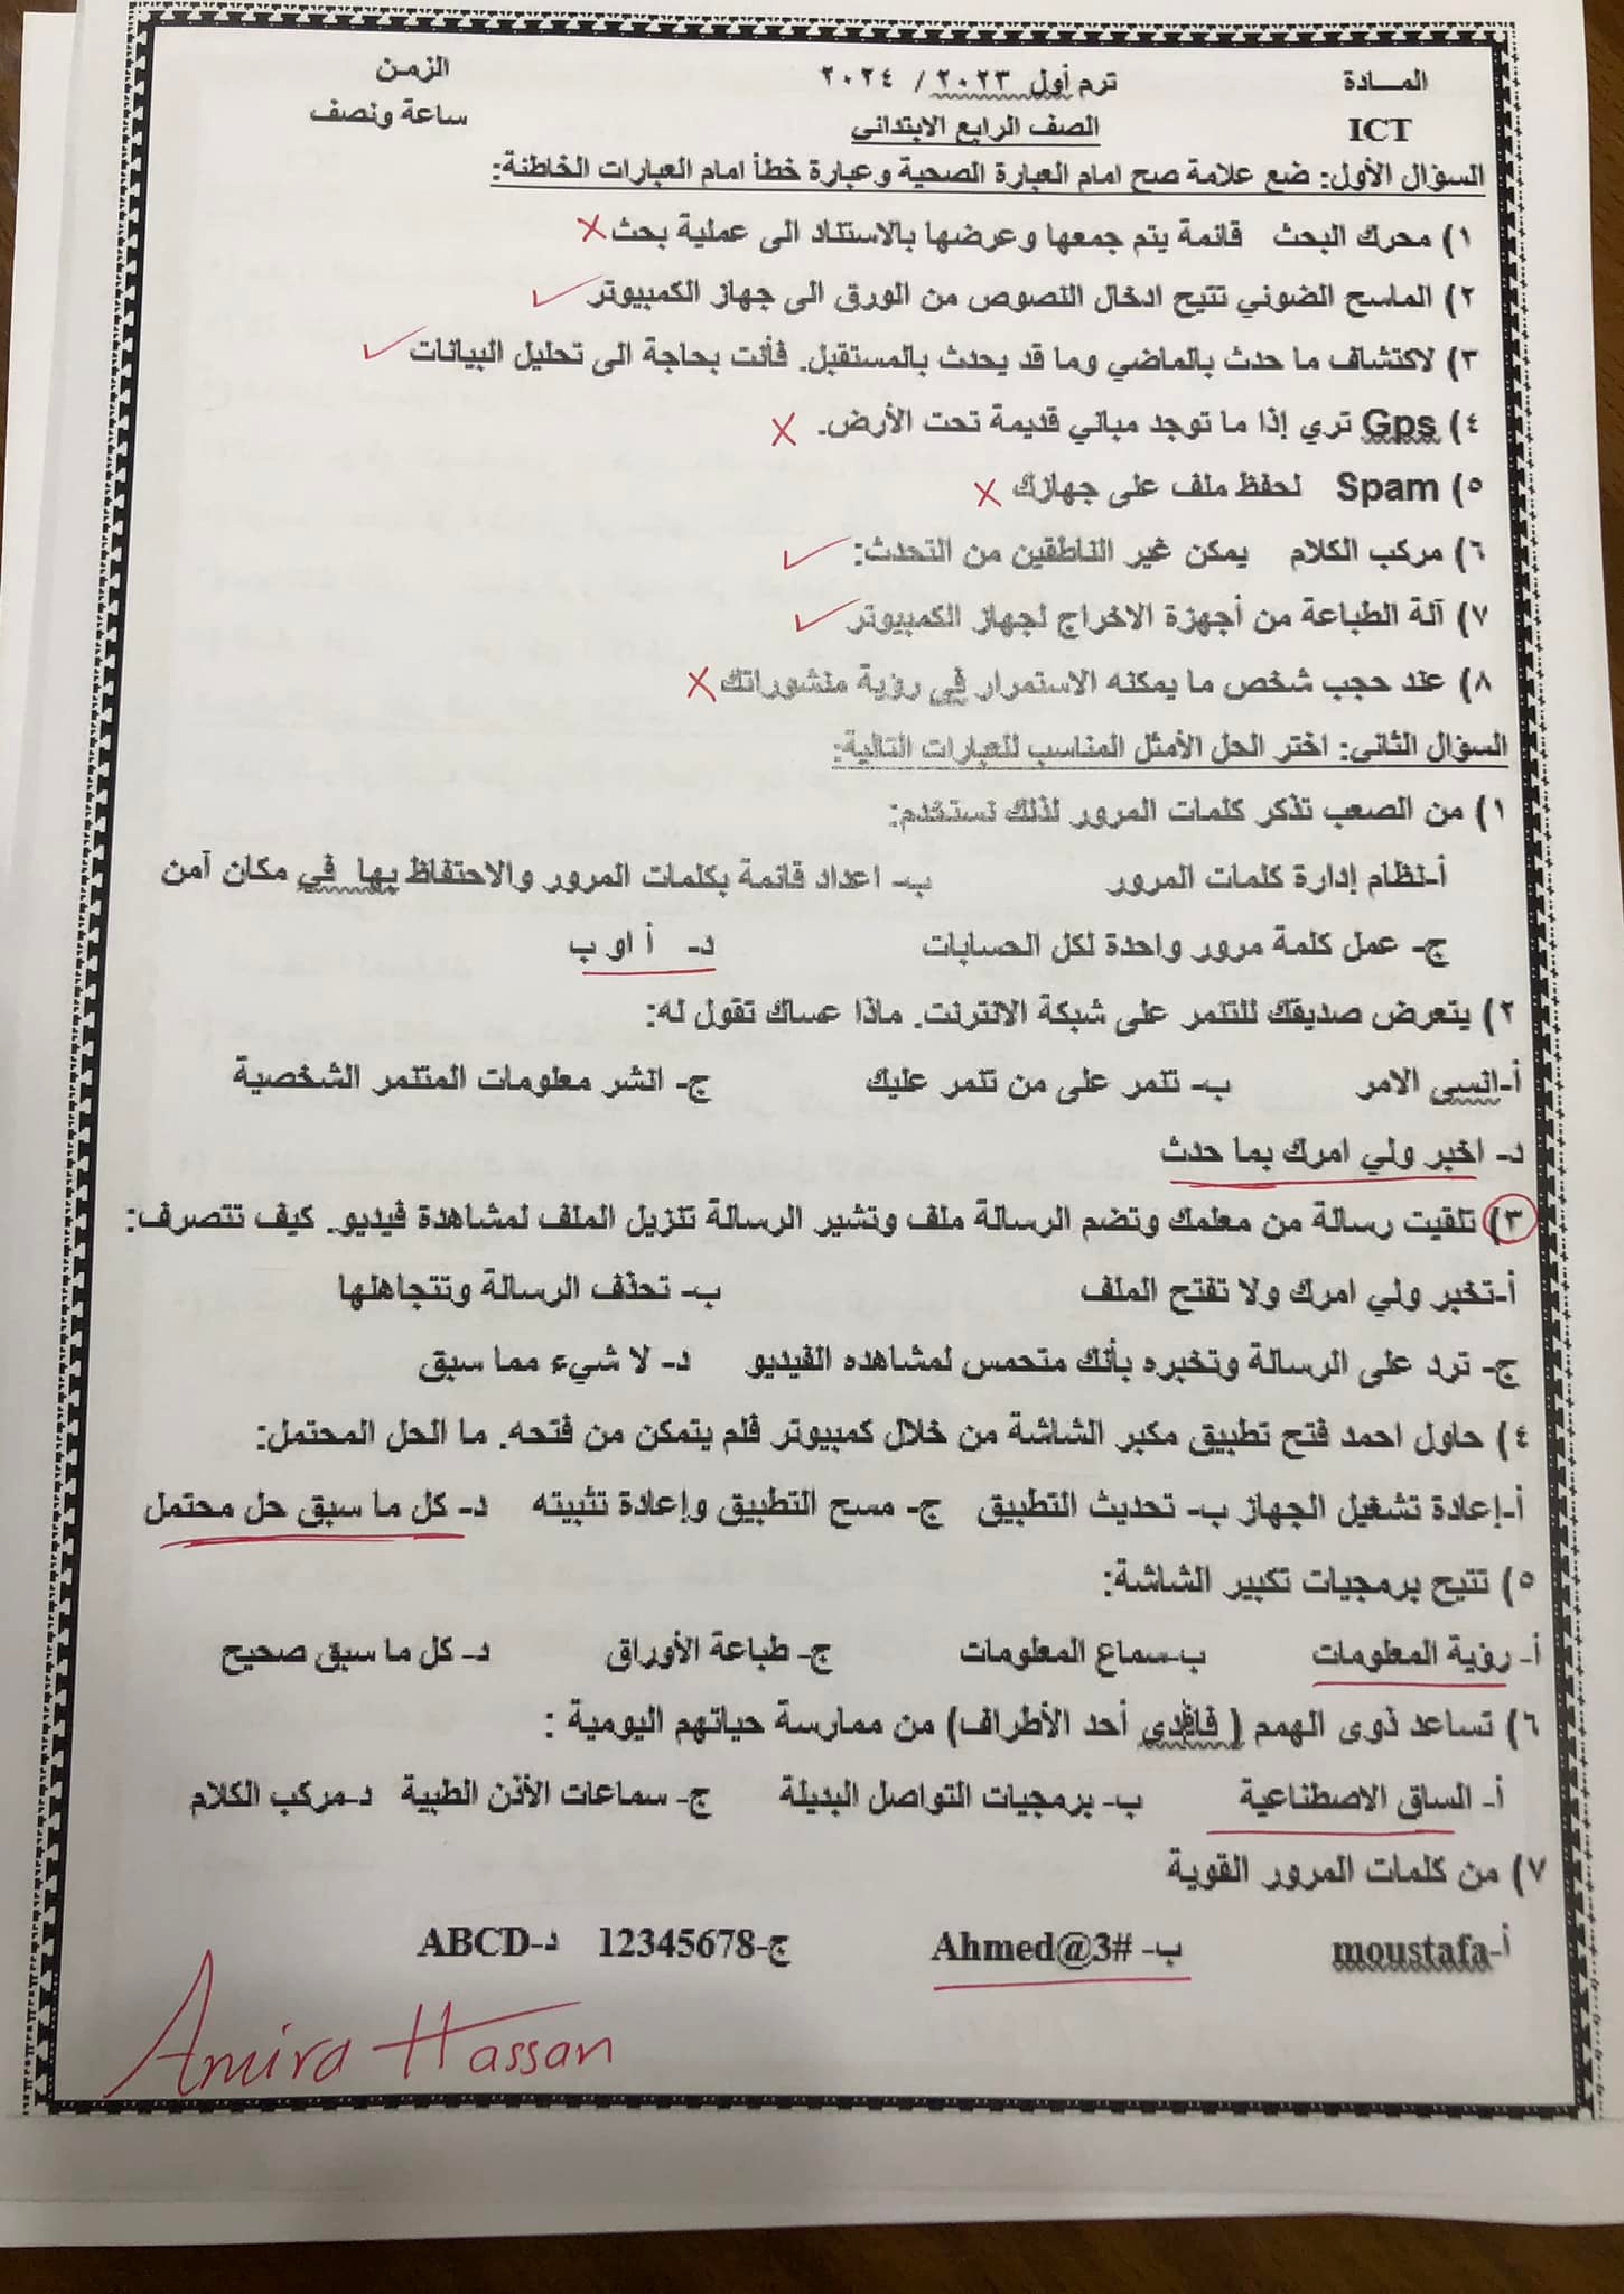 المـــادة ترم أول ٢٠٢٣ / ٢٠٢٤ الزمن
ICT الصف الرابع الابتدائى ساعة ونصف
السؤال الأول: ضع علامة صح امام العبارة الصحية وعبارة خطأ امام العبارات الخاطئة:
١) محرك البحث قائمة يتم جمعها وعرضها بالاستناد الى عملية بحث ×
٢) الماسح الضوئي تتيح ادخال النصوص من الورق الى جهاز الكمبيوتر ✓
٣) لاكتشاف ما حدث بالماضي وما قد يحدث بالمستقبل. فأنت بحاجة الى تحليل البيانات ✓
٤) Gps تري إذا ما توجد مباني قديمة تحت الأرض. ×
٥) Spam لحفظ ملف على جهازك ×
٦) مركب الكلام يمكن غير الناطقين من التحدث: ✓
٧) آلة الطباعة من أجهزة الاخراج لجهاز الكمبيوتر ✓
٨) عند حجب شخص ما يمكنه الاستمرار في رؤية منشوراتك ×
السؤال الثانى: اختر الحل الأمثل المناسب للعبارات التالية:
١) من الصعب تذكر كلمات المرور لذلك نستخدم:
أ-نظام إدارة كلمات المرور ب- اعداد قائمة بكلمات المرور والاحتفاظ بها في مكان آمن
ج- عمل كلمة مرور واحدة لكل الحسابات د- أ او ب
٢) يتعرض صديقك للتنمر على شبكة الانترنت. ماذا عساك تقول له:
أ-انسى الامر ب- تنمر على من تنمر عليك ج- انشر معلومات المتنمر الشخصية
د- اخبر ولي امرك بما حدث
٣) تلقيت رسالة من معلمك وتضم الرسالة ملف وتشير الرسالة تنزيل الملف لمشاهدة فيديو. كيف تتصرف:
أ-تخبر ولي امرك ولا تفتح الملف ب- تحذف الرسالة وتتجاهلها
ج- ترد على الرسالة وتخبره بأنك متحمس لمشاهده الفيديو د- لا شيء مما سبق
٤) حاول احمد فتح تطبيق مكبر الشاشة من خلال كمبيوتر فلم يتمكن من فتحه. ما الحل المحتمل:
أ-إعادة تشغيل الجهاز ب- تحديث التطبيق ج- مسح التطبيق وإعادة تثبيته د- كل ما سبق حل محتمل
٥) تتيح برمجيات تكبير الشاشة:
أ- رؤية المعلومات ب-سماع المعلومات ج- طباعة الأوراق د- كل ما سبق صحيح
٦) تساعد ذوى الهمم ( فاقدى أحد الأطراف) من ممارسة حياتهم اليومية :
أ- الساق الاصطناعية ب- برمجيات التواصل البديلة ج- سماعات الأذن الطبية د-مركب الكلام
٧) من كلمات المرور القوية
أ-moustafa ب- Ahmed@3# ج-12345678 د-ABCD
Amira Hassan